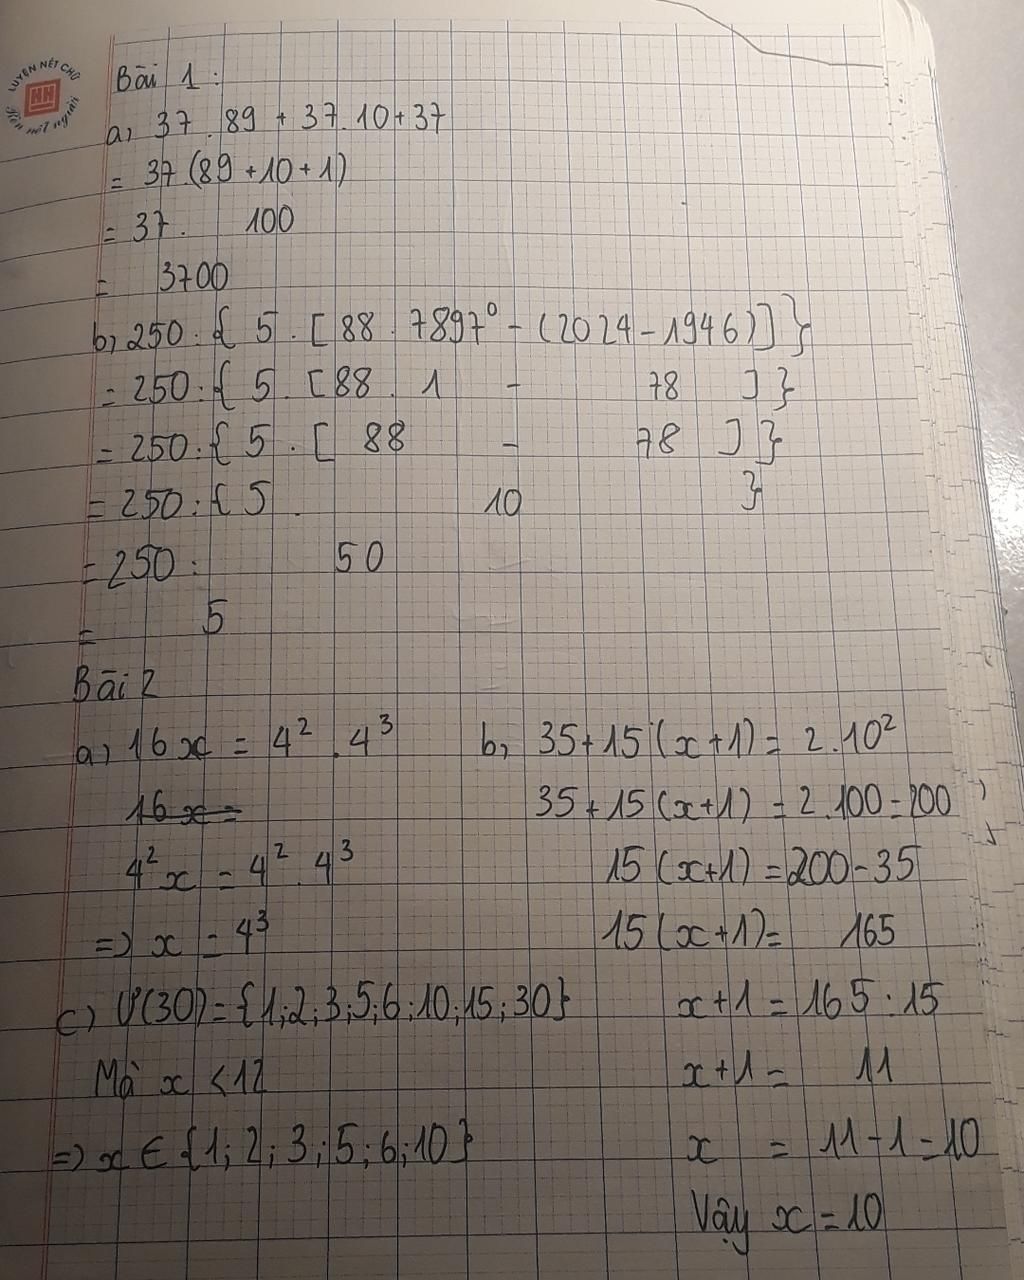 LUYỆN NÉT CHỮ
NN
Rèn nết người
Bài 1:
a, 37 . 89 + 37 . 10 + 37
= 37 . (89 + 10 + 1)
= 37 . 100
= 3700
b, 250 : { 5 . [ 88 . 7897⁰ - (2024 - 1946) ] }
= 250 : { 5 . [ 88 . 1 - 78 ] }
= 250 : { 5 . [ 88 - 78 ] }
= 250 : { 5 . 10 }
= 250 : 50
= 5
Bài 2
a, 16x = 4² . 4³
16x =
4²x = 4² . 4³
=> x = 4³
c, Ư(30) = {1; 2; 3; 5; 6; 10; 15; 30}
Mà x < 12
=> x ∈ {1; 2; 3; 5; 6; 10}
b, 35 + 15 (x + 1) = 2 . 10²
35 + 15 (x + 1) = 2 . 100 = 200
15 (x + 1) = 200 - 35
15 (x + 1) = 165
x + 1 = 165 : 15
x + 1 = 11
x = 11 - 1 = 10
Vậy x = 10